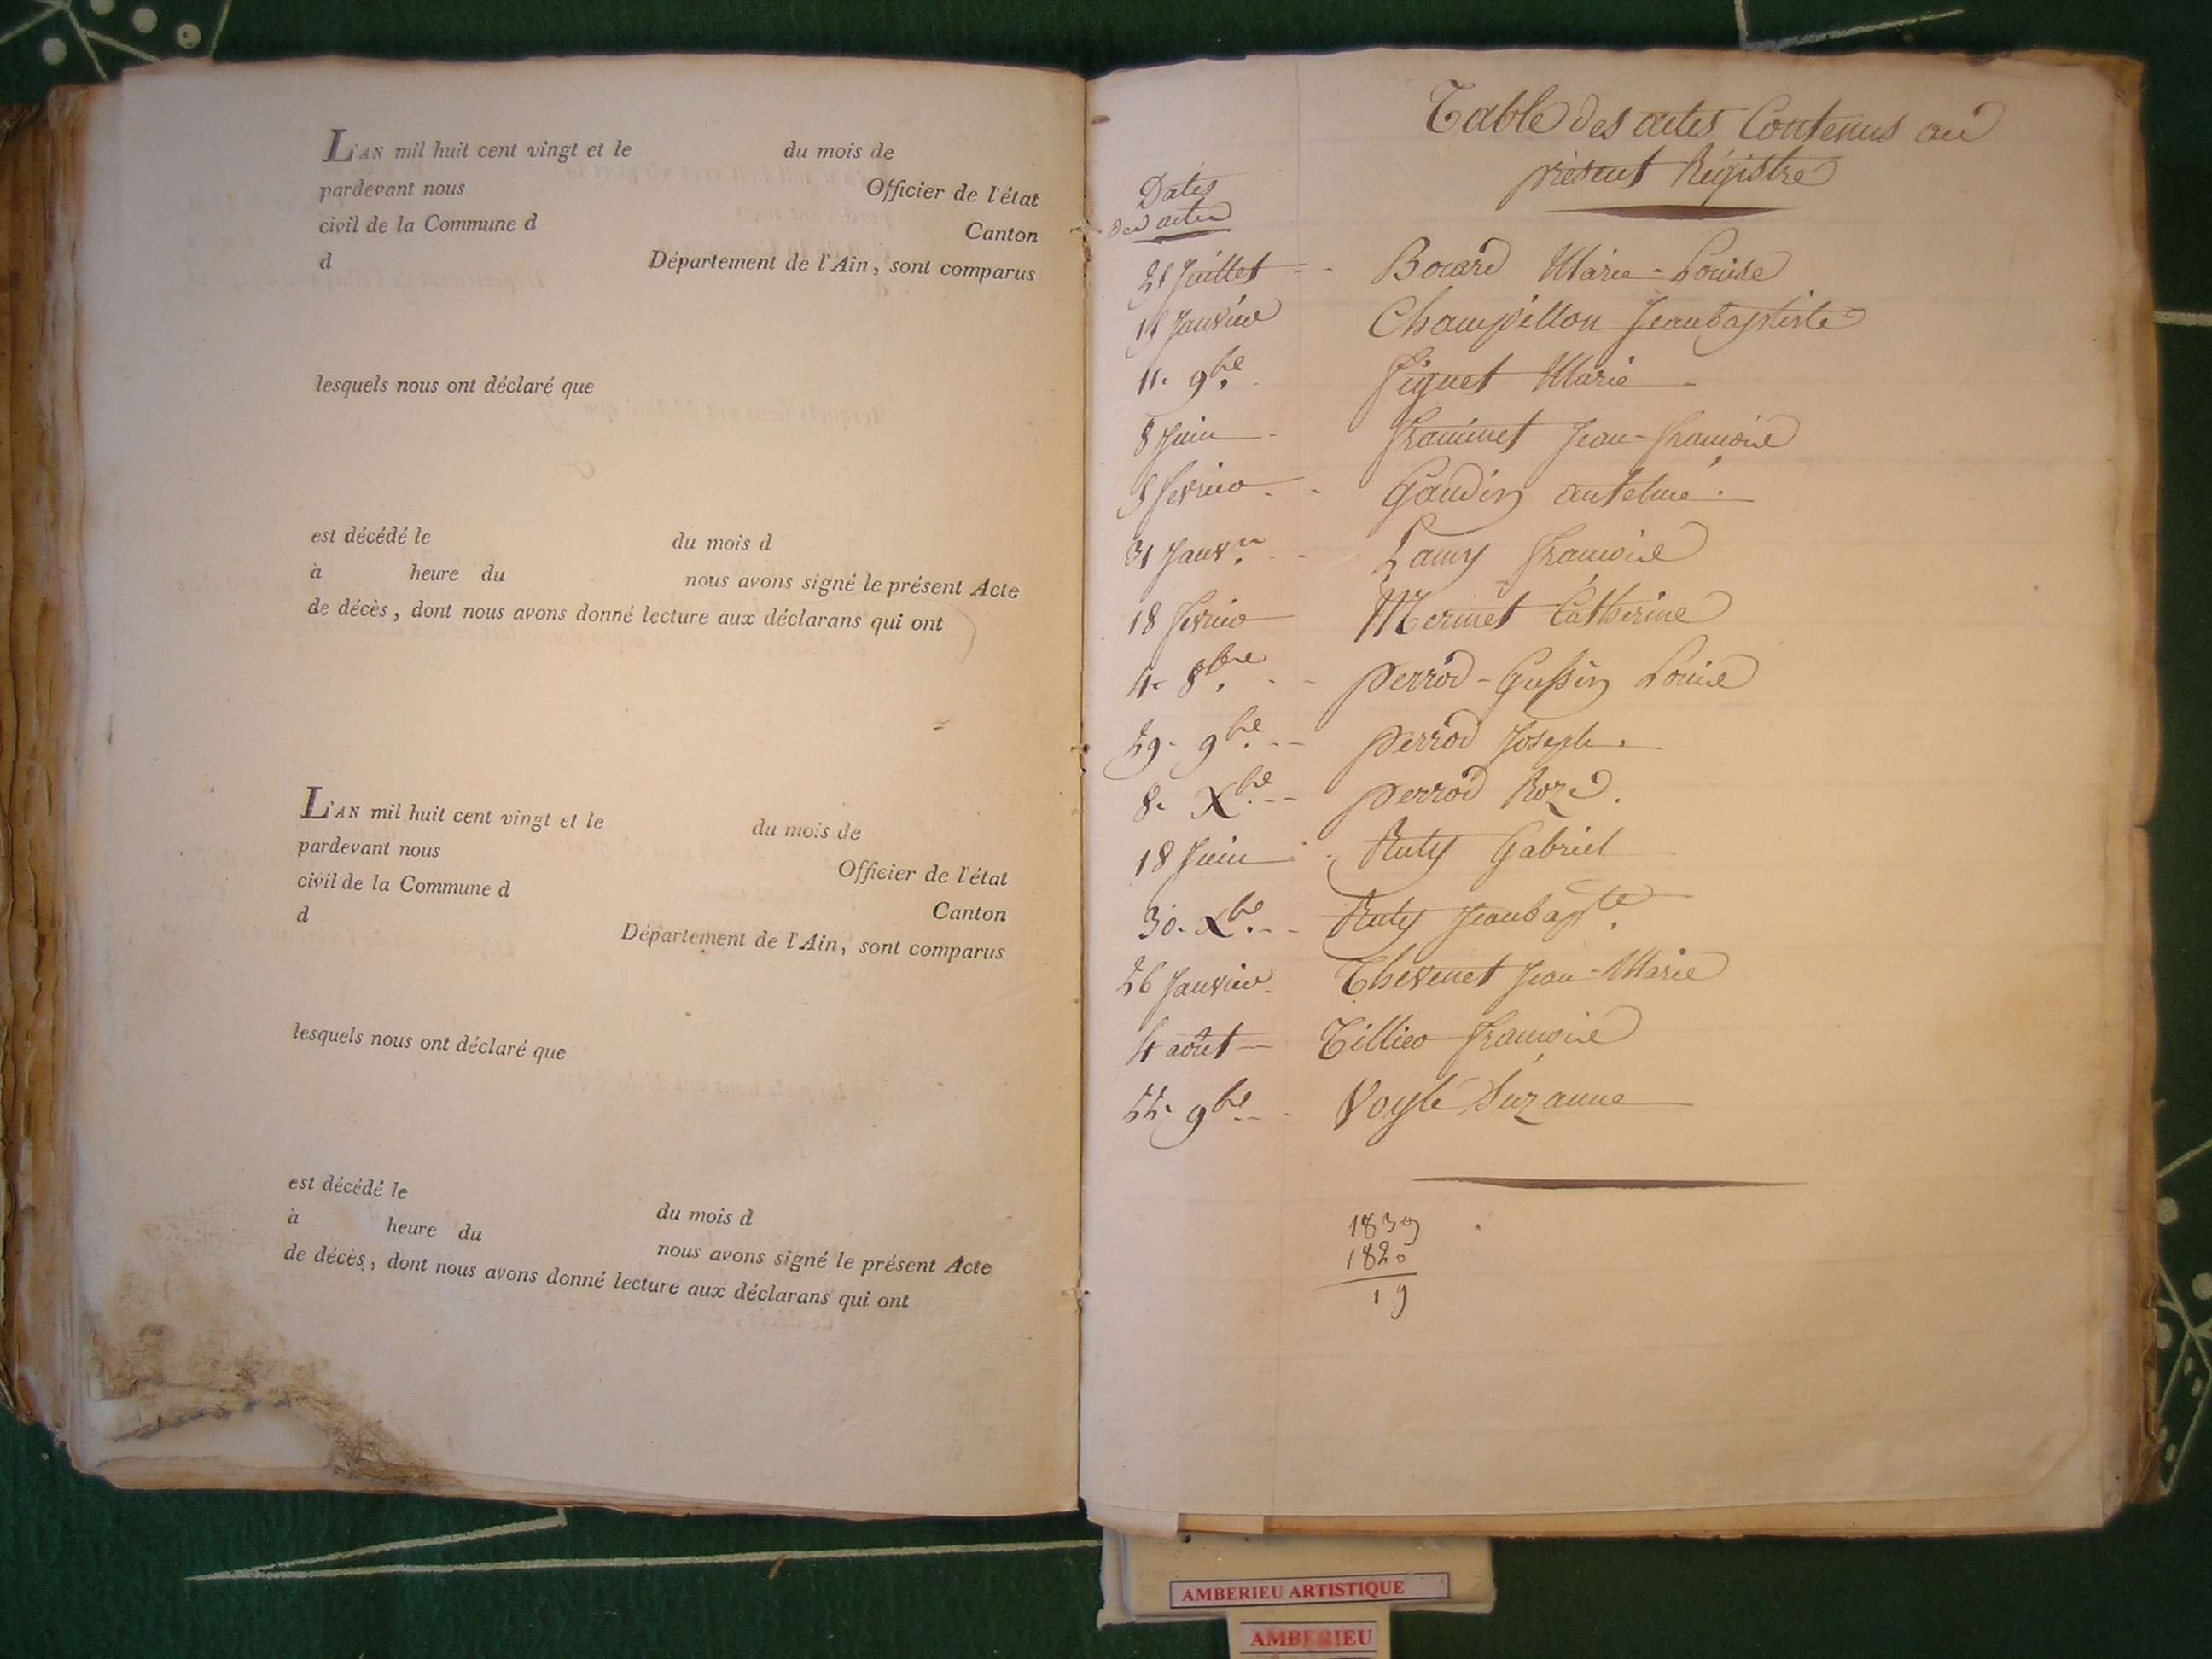 L'AN mil huit cent vingt et le du mois de
pardevant nous Officier de l'état
civil de la Commune d Canton
d Département de l'Ain, sont comparus
lesquels nous ont déclaré que
est décédé le du mois d
à heure du nous avons signé le présent Acte
de décès, dont nous avons donné lecture aux déclarans qui ont
L'AN mil huit cent vingt et le du mois de
pardevant nous Officier de l'état
civil de la Commune d Canton
d Département de l'Ain, sont comparus
lesquels nous ont déclaré que
est décédé le du mois d
à heure du nous avons signé le présent Acte
de décès, dont nous avons donné lecture aux déclarans qui ont
Table des actes Contenus au
présent Régistre
Dates
des actes
21 Juillet Bouard Marie-Louise
Janvier Champillon Jeanbaptiste
11. 9bre Figuet Marie
8 Juin Jean-françoise
fevrier Gaudin antelme
31 Janvr Lamy françoise
18 fevrier Mermet Catherine
4. 8bre perrod-Gussin Louise
29. 9bre perrod Joseph.
8. Xbre perrod Roze.
18 Juin Ruty Gabriel
30. Xbre Ruty Jeanbapte
26 Janvier Thevenet Jean-Marie
4 août Tillier françoise
22. 9bre Voyle Suzanne
1839
1820
19
AMBERIEU ARTISTIQUE
AMBERIEU